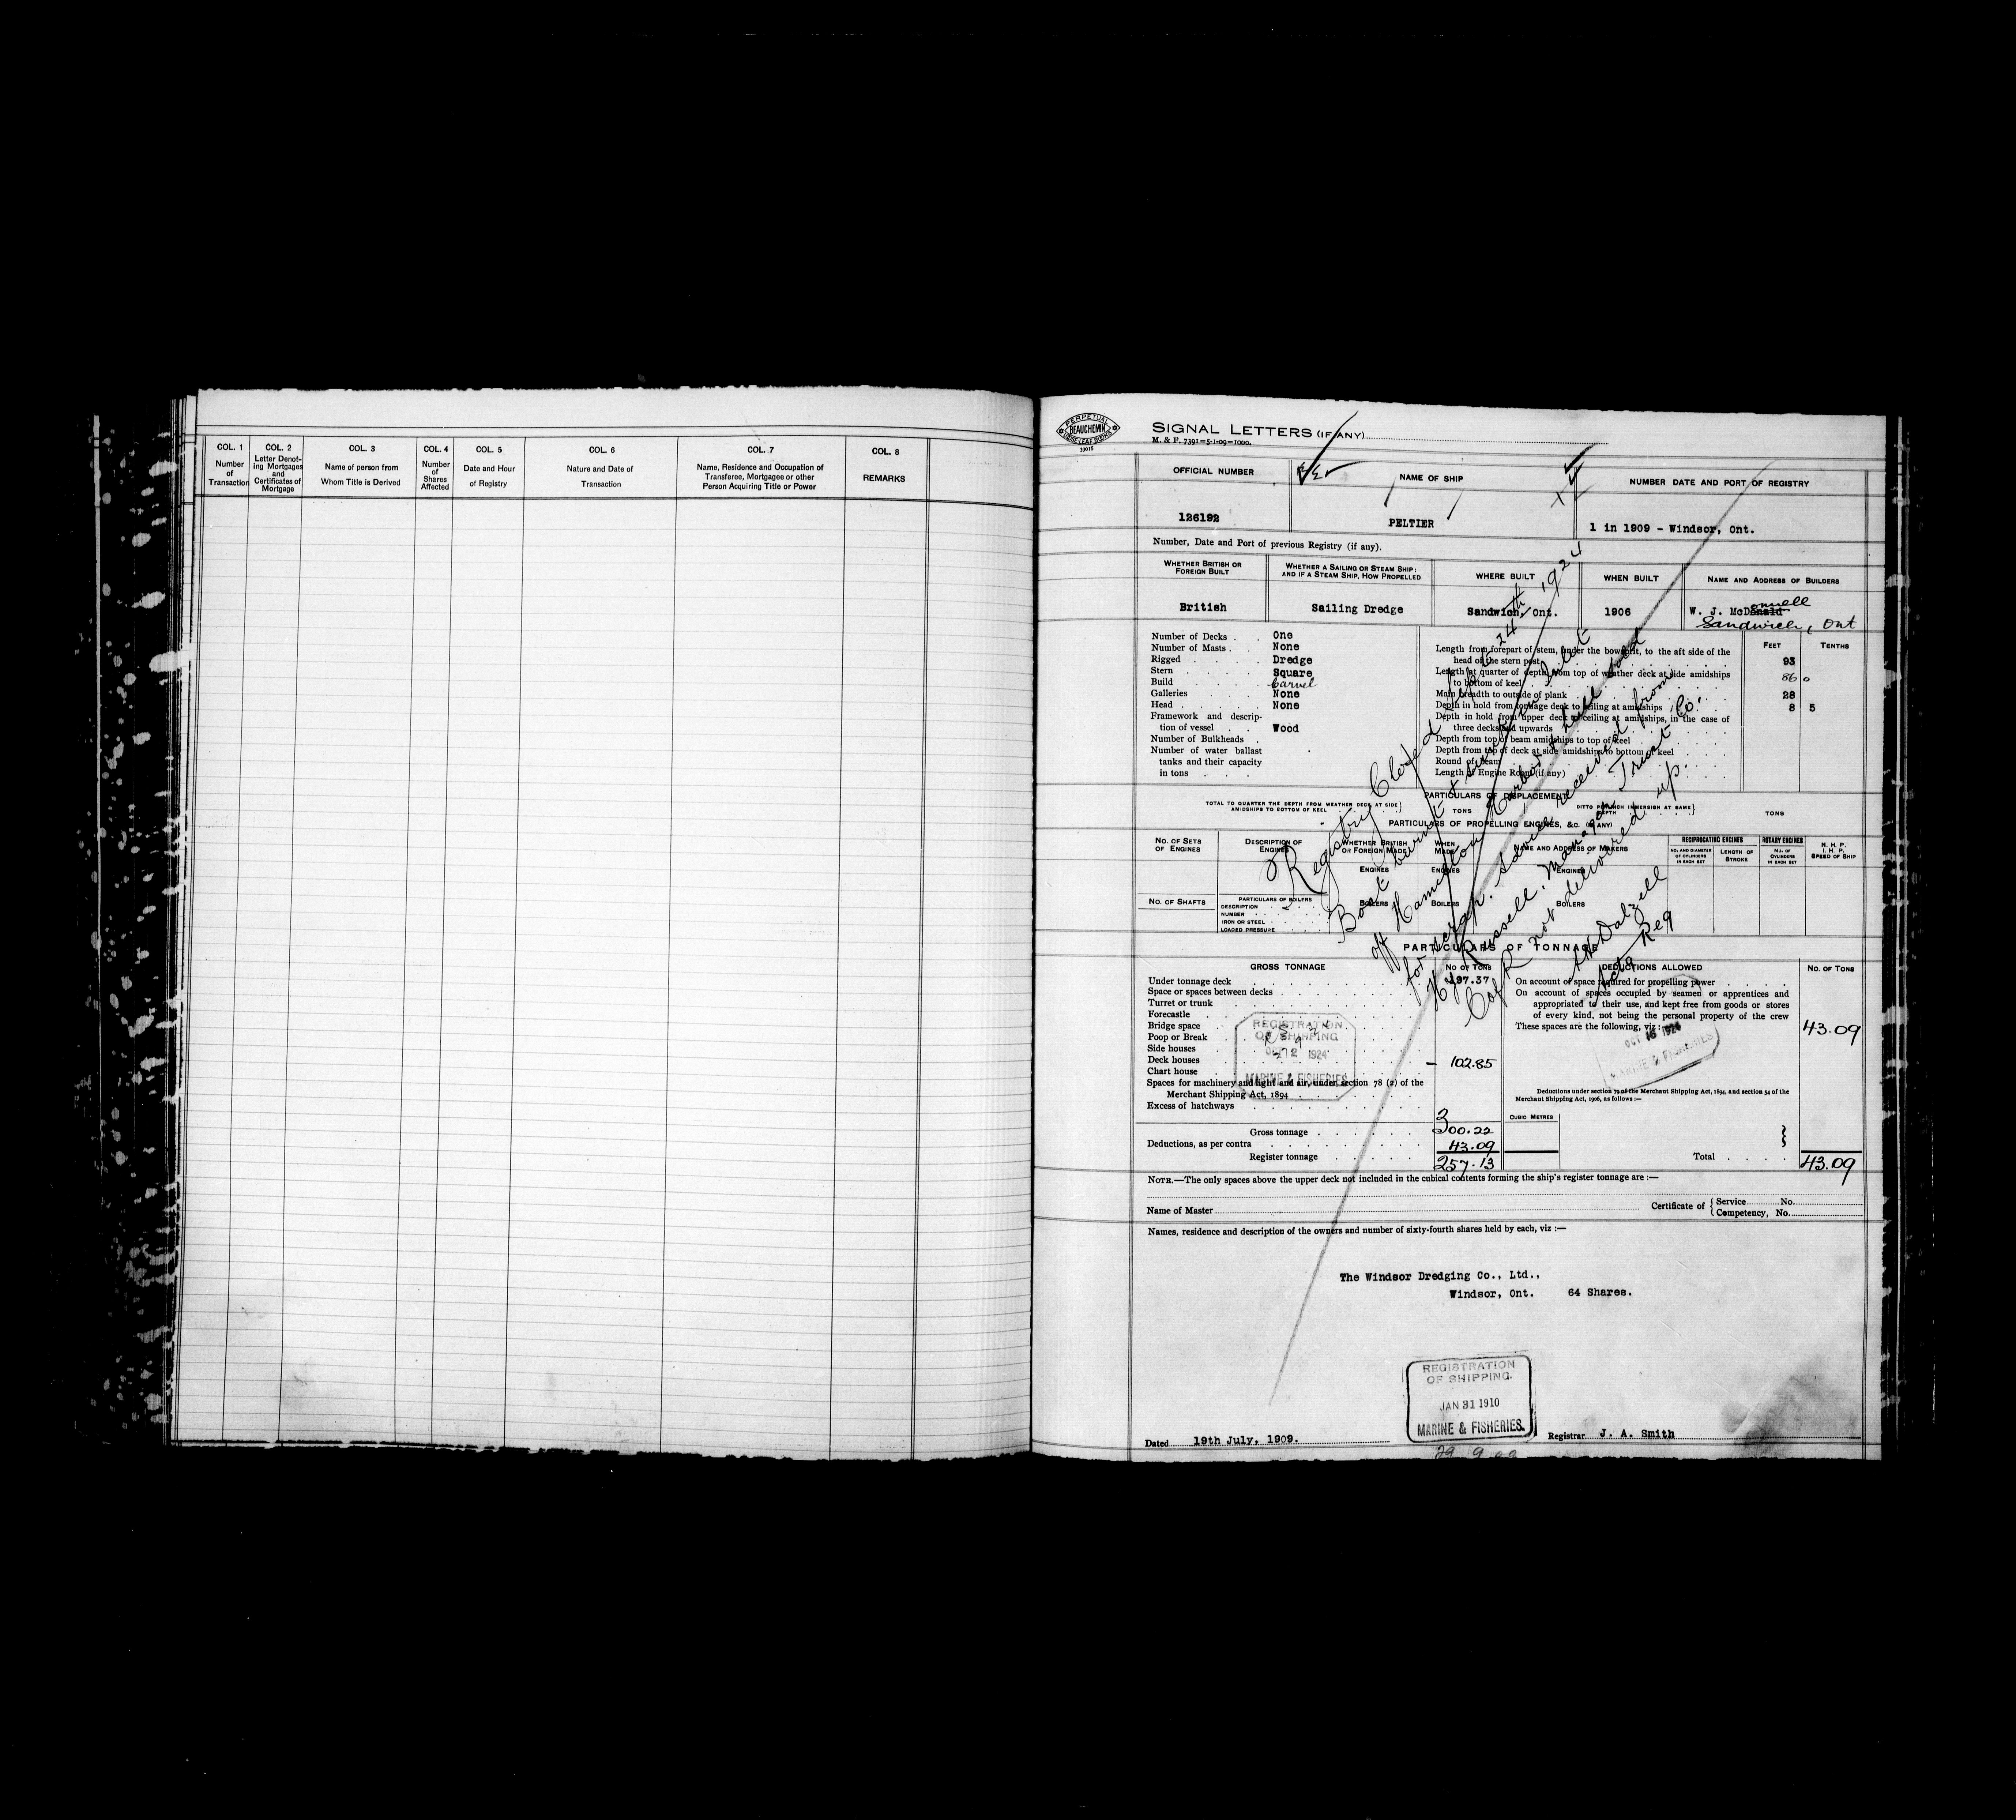 COL. 1
Number
of
Transaction
COL. 2
Letter Denot-
ing Mortgages
and
Certificates of
Mortgage
COL. 3
Name of person from
Whom Title is Derived
COL. 4
Number
of
Shares
Affected
COL. 5
Date and Hour
of Registry
COL. 6
Nature and Date of
Transaction
COL. 7
Name, Residence and Occupation of
Transferee, Mortgagee or other
Person Acquiring Title or Power
COL. 8
REMARKS
PERPETUAL
BEAUCHEMIN
SIGNAL LETTERS (IF ANY)
M. & F. 7391=5-1-09=1000.
OFFICIAL NUMBER
NAME OF SHIP
NUMBER DATE AND PORT OF REGISTRY
126192
PELTIER
1 in 1909 - Windsor, Ont.
Number, Date and Port of previous Registry (if any).
WHETHER BRITISH OR
FOREIGN BUILT
WHETHER A SAILING OR STEAM SHIP:
AND IF A STEAM SHIP, HOW PROPELLED
WHERE BUILT
WHEN BUILT
NAME AND ADDRESS OF BUILDERS
British
Sailing Dredge
Sandwich, Ont.
1906
W. J. McDonald
onnell
Sandwich, Ont
Number of Decks . . One
Number of Masts . . None
Rigged . . . Dredge
Stern . . . Square
Build . . . Carvel
Galleries . . . None
Head . . . None
Framework and descrip-
tion of vessel . . Wood
Number of Bulkheads .
Number of water ballast
tanks and their capacity
in tons . . .
FEET TENTHS
Length from forepart of stem, under the bowsprit, to the aft side of the
head of the stern post 93
Length at quarter of depth from top of weather deck at side amidships
to bottom of keel 86 0
Main breadth to outside of plank 28
Depth in hold from tonnage deck to ceiling at amidships 8 5
Depth in hold from upper deck to ceiling at amidships, in the case of
three decks and upwards
Depth from top of beam amidships to top of keel
Depth from top of deck at side amidships to bottom of keel
Round of beam
Length of Engine Room (if any)
PARTICULARS OF DISPLACEMENT
TOTAL TO QUARTER THE DEPTH FROM WEATHER DECK AT SIDE
AMIDSHIPS TO BOTTOM OF KEEL
TONS
DITTO PER INCH IMMERSION AT SAME
DEPTH
TONS
PARTICULARS OF PROPELLING ENGINES, &C. (IF ANY)
NO. OF SETS
OF ENGINES
DESCRIPTION OF
ENGINES
WHETHER BRITISH
OR FOREIGN MADE
WHEN
MADE
NAME AND ADDRESS OF MAKERS
RECIPROCATING ENGINES
NO. AND DIAMETER
OF CYLINDERS
IN EACH SET
LENGTH OF
STROKE
ROTARY ENGINES
NO. OF
CYLINDERS
IN EACH SET
N. H. P.
I. H. P.
SPEED OF SHIP
ENGINES ENGINES ENGINES
NO. OF SHAFTS
PARTICULARS OF BOILERS
DESCRIPTION
NUMBER
IRON OR STEEL
LOADED PRESSURE
BOILERS BOILERS BOILERS
Registry Closed Sept 24th 1924
Boat burnt & sunk in Inlet
off Hamilton Harbor & hull sold
for scrap. Advice received from
H J Russell. Manager Trust Co.
C of R not delivered up.
Dalzell
Actg Reg
PARTICULARS OF TONNAGE
GROSS TONNAGE
NO OF TONS
DEDUCTIONS ALLOWED
NO. OF TONS
Under tonnage deck 197.37
Space or spaces between decks
Turret or trunk
Forecastle
Bridge space
Poop or Break
Side houses
Deck houses 102.85
Chart house
Spaces for machinery and light and air, under section 78 (2) of the
Merchant Shipping Act, 1894
Excess of hatchways
Gross tonnage 300.22
Deductions, as per contra 43.09
Register tonnage 257.13
On account of space required for propelling power
On account of spaces occupied by seamen or apprentices and
appropriated to their use, and kept free from goods or stores
of every kind, not being the personal property of the crew
These spaces are the following, viz :— 43.09
Deductions under section 79 of the Merchant Shipping Act, 1894, and section 54 of the
Merchant Shipping Act, 1906, as follows :—
CUBIC METRES
Total 43.09
REGISTRATION
OF SHIPPING
1924
MARINE & FISHERIES
OCT 16 1924
MARINE & FISHERIES
NOTE.—The only spaces above the upper deck not included in the cubical contents forming the ship's register tonnage are :—
Name of Master
Certificate of
Service No.
Competency, No.
Names, residence and description of the owners and number of sixty-fourth shares held by each, viz :—
The Windsor Dredging Co., Ltd.,
Windsor, Ont. 64 Shares.
REGISTRATION
OF SHIPPING.
JAN 31 1910
MARINE & FISHERIES.
Dated 19th July, 1909.
Registrar J. A. Smith